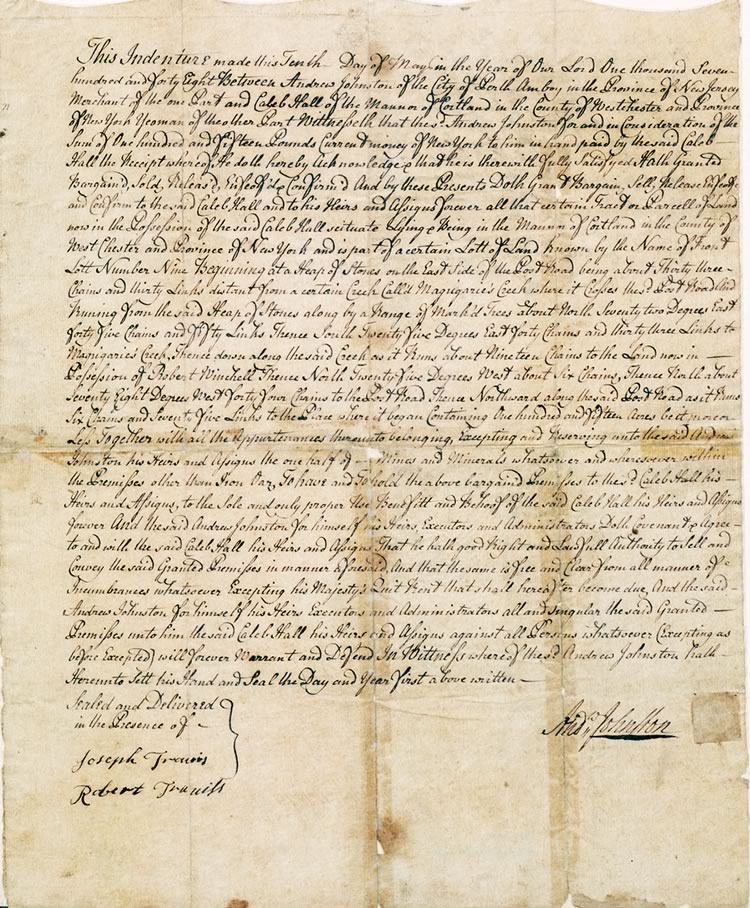 This Indenture made this Tenth Day of May in the Year of Our Lord One thousand Seven
hundred and forty Eight Between Andrew Johnston of the City of Perth Amboy in the Province of New Jersey
Merchant of the one Part and Caleb Hall of the Mannor of Cortland in the County of Westchester and Province
of New York Yeoman of the other Part Witnesseth that the sd. Andrew Johnston for and in Consideration of the
Sum of One hundred and fifteen Pounds Current money of New York to him in hand paid by the said Caleb
Hall the Receipt whereof He doth hereby Acknowledge & that he is therewith fully Satisfyed Hath Granted
Bargain'd, Sold, Releas'd, Enfeof'd & Confirm'd And by these Presents Doth Grant Bargain, Sell, Release Enfeofe
and Confirm to the said Caleb Hall and to his Heirs and Assigns forever all that certain Tract or Parcell of Land
now in the Possession of the said Caleb Hall scituate Lying & Being in the Mannor of Cortland in the County of
West Chester and Province of New York and is part of a certain Lott of Land known by the Name of Front
Lott Number Nine Beginning at a Heap of Stones on the East Side of the Post Road being about Thirty three
Chains and thirty Links distant from a certain Creek Call'd Magrigaries Creek where it Crosses the sd. Post Road And
Runing from the said Heap of Stones along by a Range of Mark'd Trees about North Seventy two Degrees East
forty five Chains and fifty Links Thence South Twenty five Degrees East forty Chains and thirty three Links to
Magrigaries Creek, Thence down along the said Creek as it Runs about Nineteen Chains to the Land now in
Possession of Robert Winchell Thence North Twenty five Degrees West about Six Chains, Thence North about
Seventy Eight Degrees West forty four Chains to the Post Road Thence Northward along the said Post Road as it Runs
Six Chains and Seventy five Links to the Place where it began Containing One hundred and fifteen Acres be it more or
Less Together with all the Appurtenances thereunto belonging, Excepting and Reserving unto the said Andrew
Johnston his Heirs and Assigns the one half of Mines and Minerals whatsoever and wheresoever within
the Premisses other then Iron Oar, To have and To hold the above bargaind Premisses to the sd. Caleb Hall his
Heirs and Assigns, to the Sole and only proper Use Benefitt and Behoof of the said Caleb Hall his Heirs and Assigns
forever And the said Andrew Johnston for himself his Heirs, Executors and Administrators Doth Covenant & Agree
to and with the said Caleb Hall his Heirs and Assigns That he hath good Right and Lawfull Authority to Sell and
Convey the said Granted Premisses in manner aforesaid, And that the same is free and Clear from all manner of
Incumbrances whatsoever Excepting his Majestys Quit Rent that shall hereafter become due, And the said
Andrew Johnston for himself his Heirs Executors and Administrators all and singular the said Granted
Premisses unto him the said Caleb Hall his Heirs and Assigns against all Persons whatsoever (Excepting as
before Excepted) will forever Warrant and Defend In Wittness whereof the sd. Andrew Johnston hath
Hereunto Sett his Hand and Seal the Day and Year first above written
Sealed and Delivered
in the Presence of
Andw. Johnston
Joseph Travis
Robert Traviss